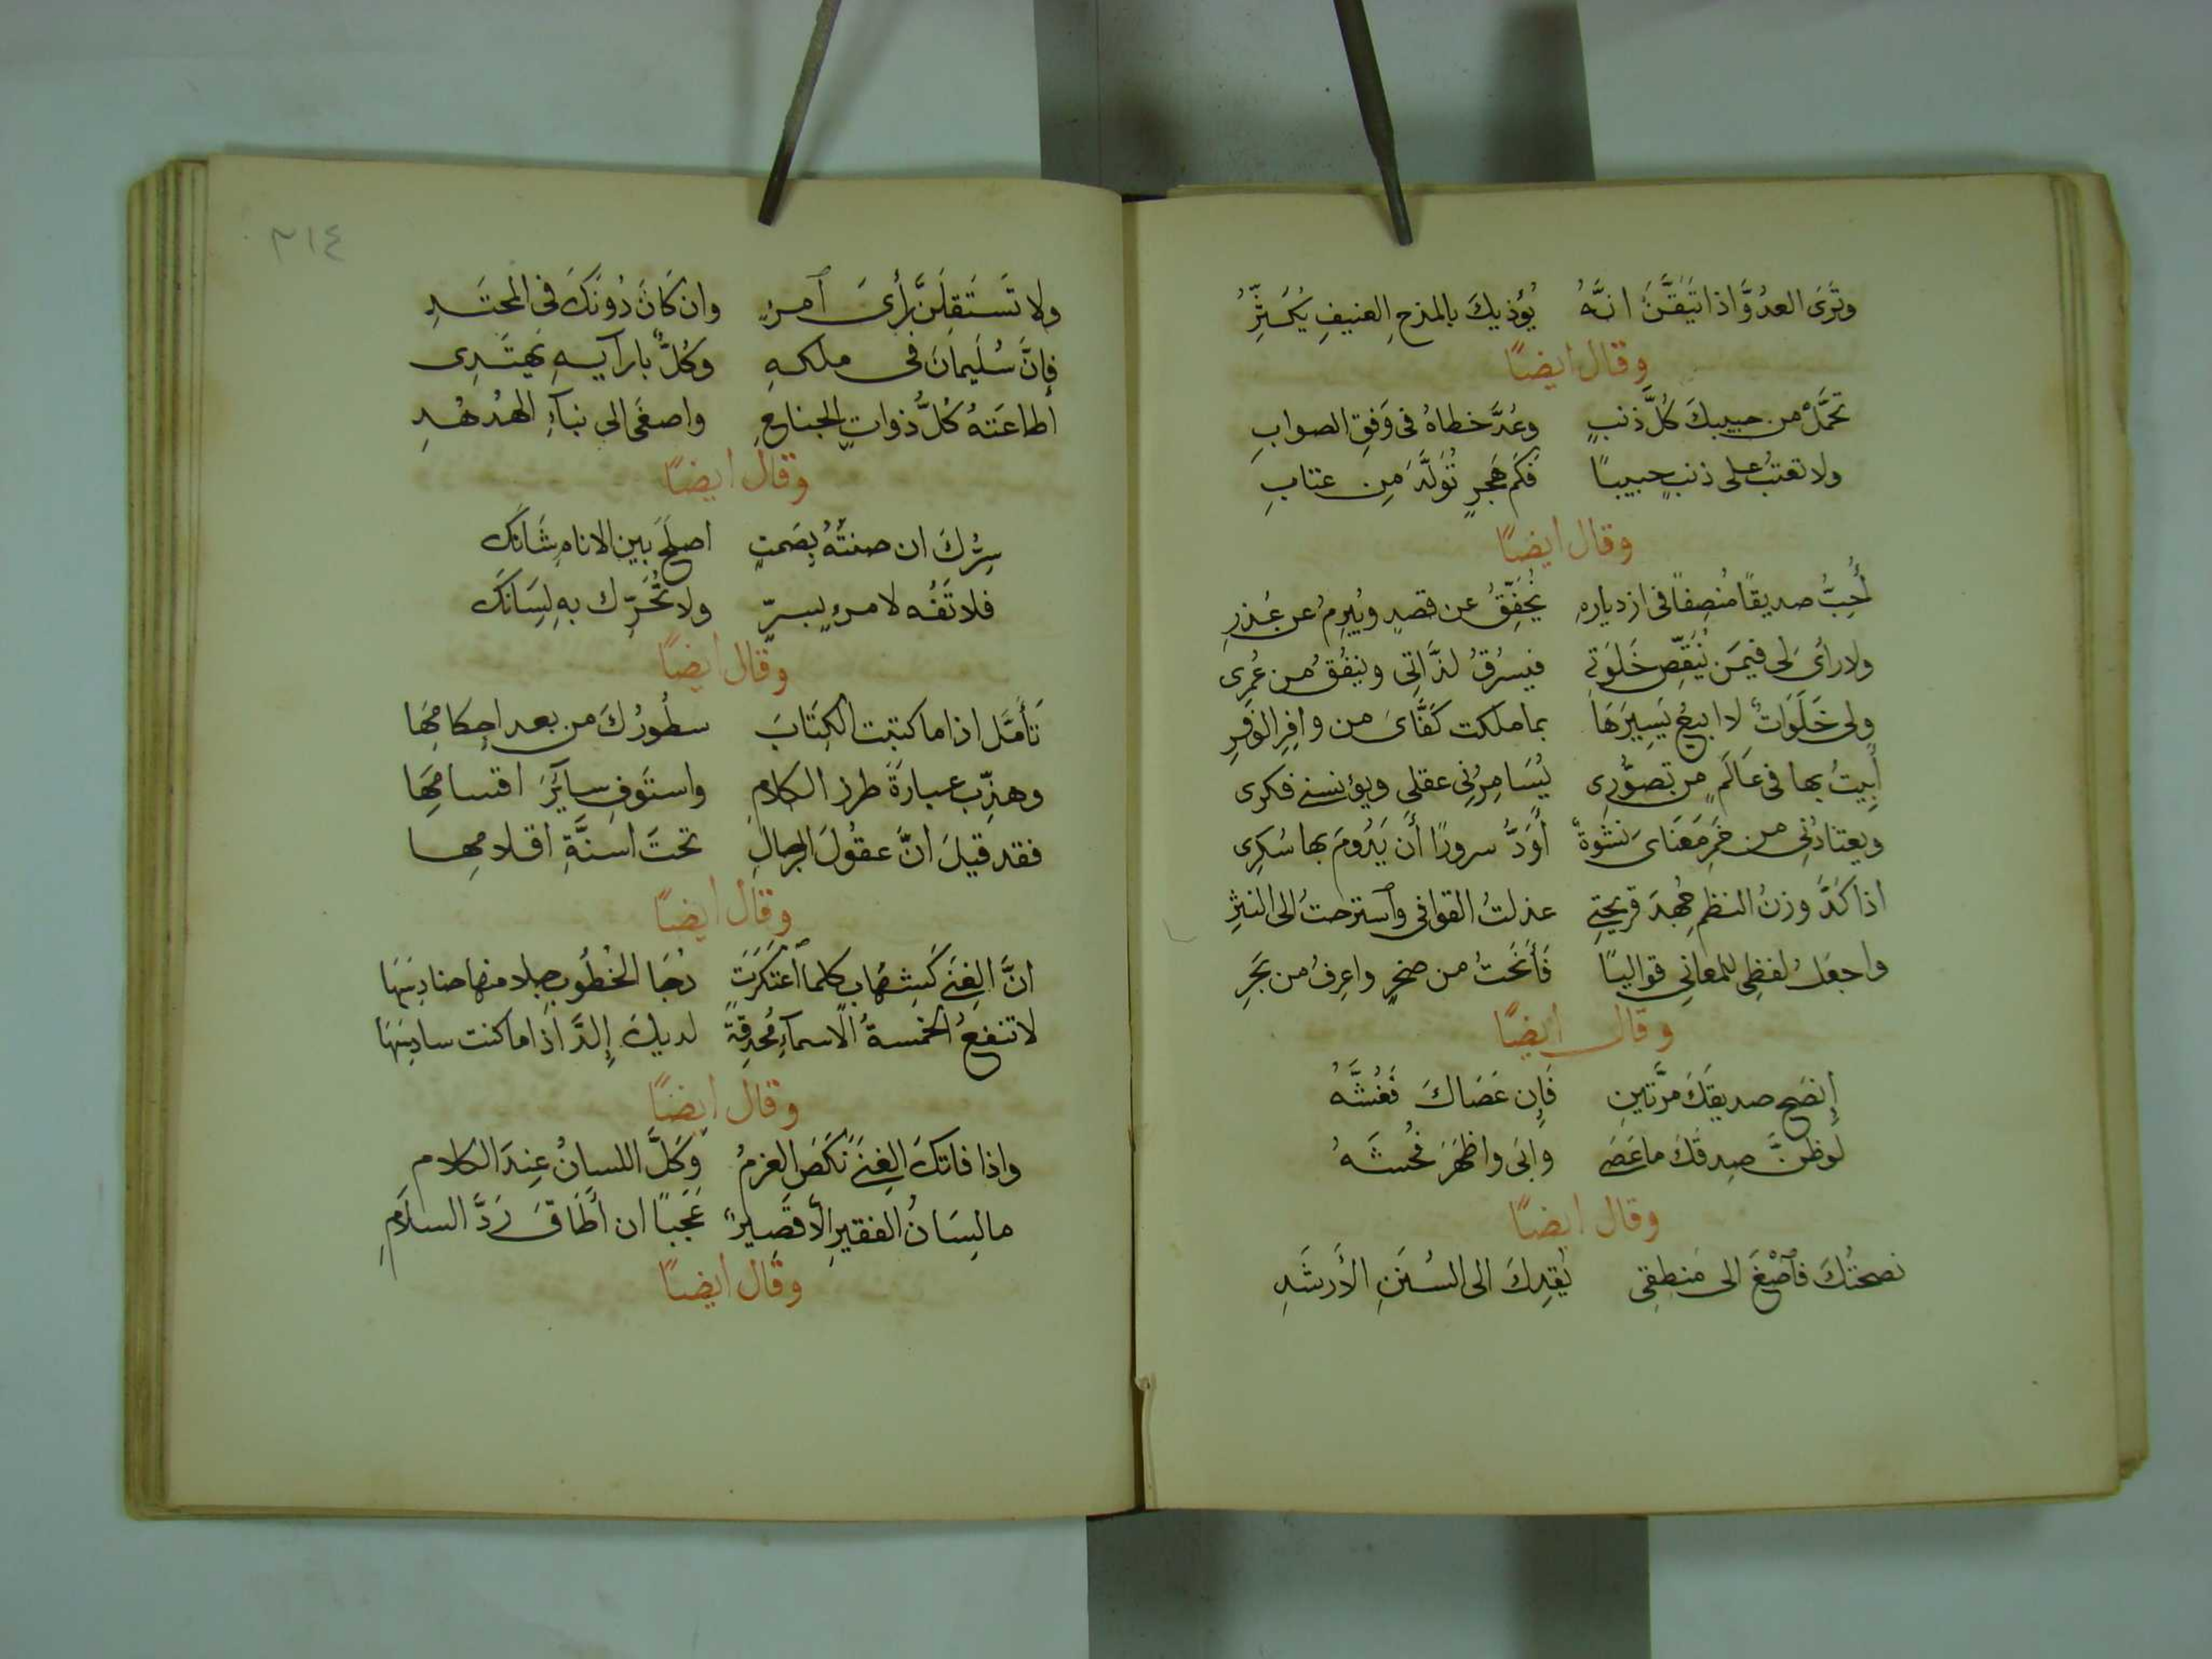 وتَرَى العدُوَّ اذا تَيَقَّنَ انَّهُ يُؤذيكَ بالمزحِ العنيفِ يُكَشِّرُ
وقال ايضًا
تحمَّلْ من حبيبكَ كُلَّ ذنبٍ وعُدَّ خطاهُ فى وَفقِ الصوابِ
ولا تعتبْ على ذنبٍ حبيبًا فكم هَجرٍ تُولَّدَ مِن عتابِ
وقال ايضًا
أُحِبُّ صديقًا مُنصِفًا فى ازديارهِ يُخَفِّفُ عن قصدٍ ويُبرِمُ عن عُذرِ
ولا رأى لى فيمَن يُنَقِّص خَلوَتى فيسرُقُ لذَّاتِى وينفُقُ من عُمرِى
ولى خَلَوَاتٌ لا ابيعُ يَسِيرَهَا بما ملكت كَفَّاىَ من وافِرِ الوَفرِ
أبِيتُ بها فى عَالَمٍ من تصوُّرِى يُسَامِرُنى عقلى ويؤنسنى فكرى
ويعتادُنِى من خَمرِ مَعنَاىَ نَشوةٌ أوَدُّ سرورًا أن يَدُومَ بها سُكرِى
اذا كَدَّ وزنُ النظم جُهدَ قريحتِى عدلتُ القوافى وٱسترحتُ الى النثرِ
واجعَلُ لفظِى للمعانى قوالبًا فَأنحَتُ من صخرٍ واغرِفُ من بَحرِ
وقال ايضًا
إنصَح صديقَكَ مرَّتَينِ فَإِن عَصَاكَ فَغُشَّهُ
لو ظنَّ صِدقَكَ ما عَصَى وابَى واظهَرَ فُحشَهُ
وقال ايضًا
نصحتُكَ فٱصْغَ الى مَنطِقِى يُهدِكَ الى السُنَنِ الأَرشَدِ
٣١٤
ولا تَستَقِلَنَّ برأىَ ٱمرئٍ وان كَانَ دُونَكَ فى المحتَدِ
فإنَّ سُلَيمانَ فى ملكهِ وكُلٌّ بارآيهِ يَهتَدِى
أطاعَتهُ كُلُّ ذواتِ الجناحِ واصغَى الى نبآءِ الهُدهُدِ
وقال ايضًا
سِرُّكَ ان صنتَهُ بِصَمتٍ اصلَحَ بين الانامِ شَانَكَ
فلا تَفُه لامرءٍ بسِرٍّ ولا تُحَرِّك بهِ لِسَانَكَ
وقال ايضًا
تَأَمَّل اذا ما كتبت الكِتَابَ سطُورُكَ من بعد احِكامِهَا
وهذِّب عبارَةَ طرز الكلامِ واستَوفِ سايَرَ اقسامِهَا
فقد قيلَ انَّ عقُولَ الرجالِ تحتَ اسنَّةِ اقلامِها
وقال ايضًا
انَّ الغِنَى كَشِهَابٍ كلما ٱعتكَرَت دُجَا الخُطُوبِ جلا منها حنادِسَهَا
لا تنفعُ الخمسةُ الاسمآءِ مُحدِقةً لديكَ إلّا اذا ما كنت سادِسَهَا
وقال ايضًا
واذا فاتكَ الغِنَى نَكَصَ العزمُ وَكَلَّ اللسانُ عِندَ الكلامِ
ما لِسَانُ الفقيرِ الّا قَصِيرٌ عَجَبًا ان أطَاقَ رَدَّ السلَامِ
وقال ايضًا